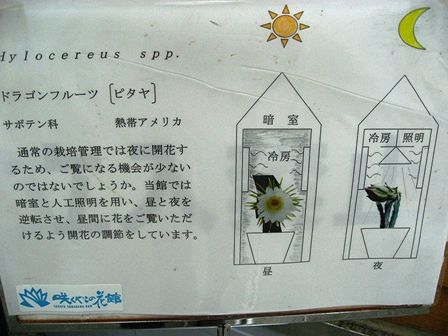 Hylocereus spp.
ドラゴンフルーツ [ピタヤ]
サボテン科 熱帯アメリカ
通常の栽培管理では夜に開花す
るため、ご覧になる機会が少ない
のではないでしょうか。当館では
暗室と人工照明を用い、昼と夜を
逆転させ、昼間に花をご覧いただ
けるよう開花の調節をしています。
暗室
冷房
昼
冷房 照明
夜
咲くやこの花館
SAKUYA KONOHANA KAN